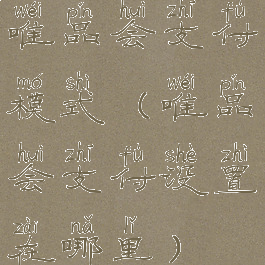 wéi pǐn huì zhī fù
唯品会支付
mó shì wéi pǐn
模式（唯品
huì zhī fù shè zhì
会支付设置
zài nǎ lǐ
在哪里）